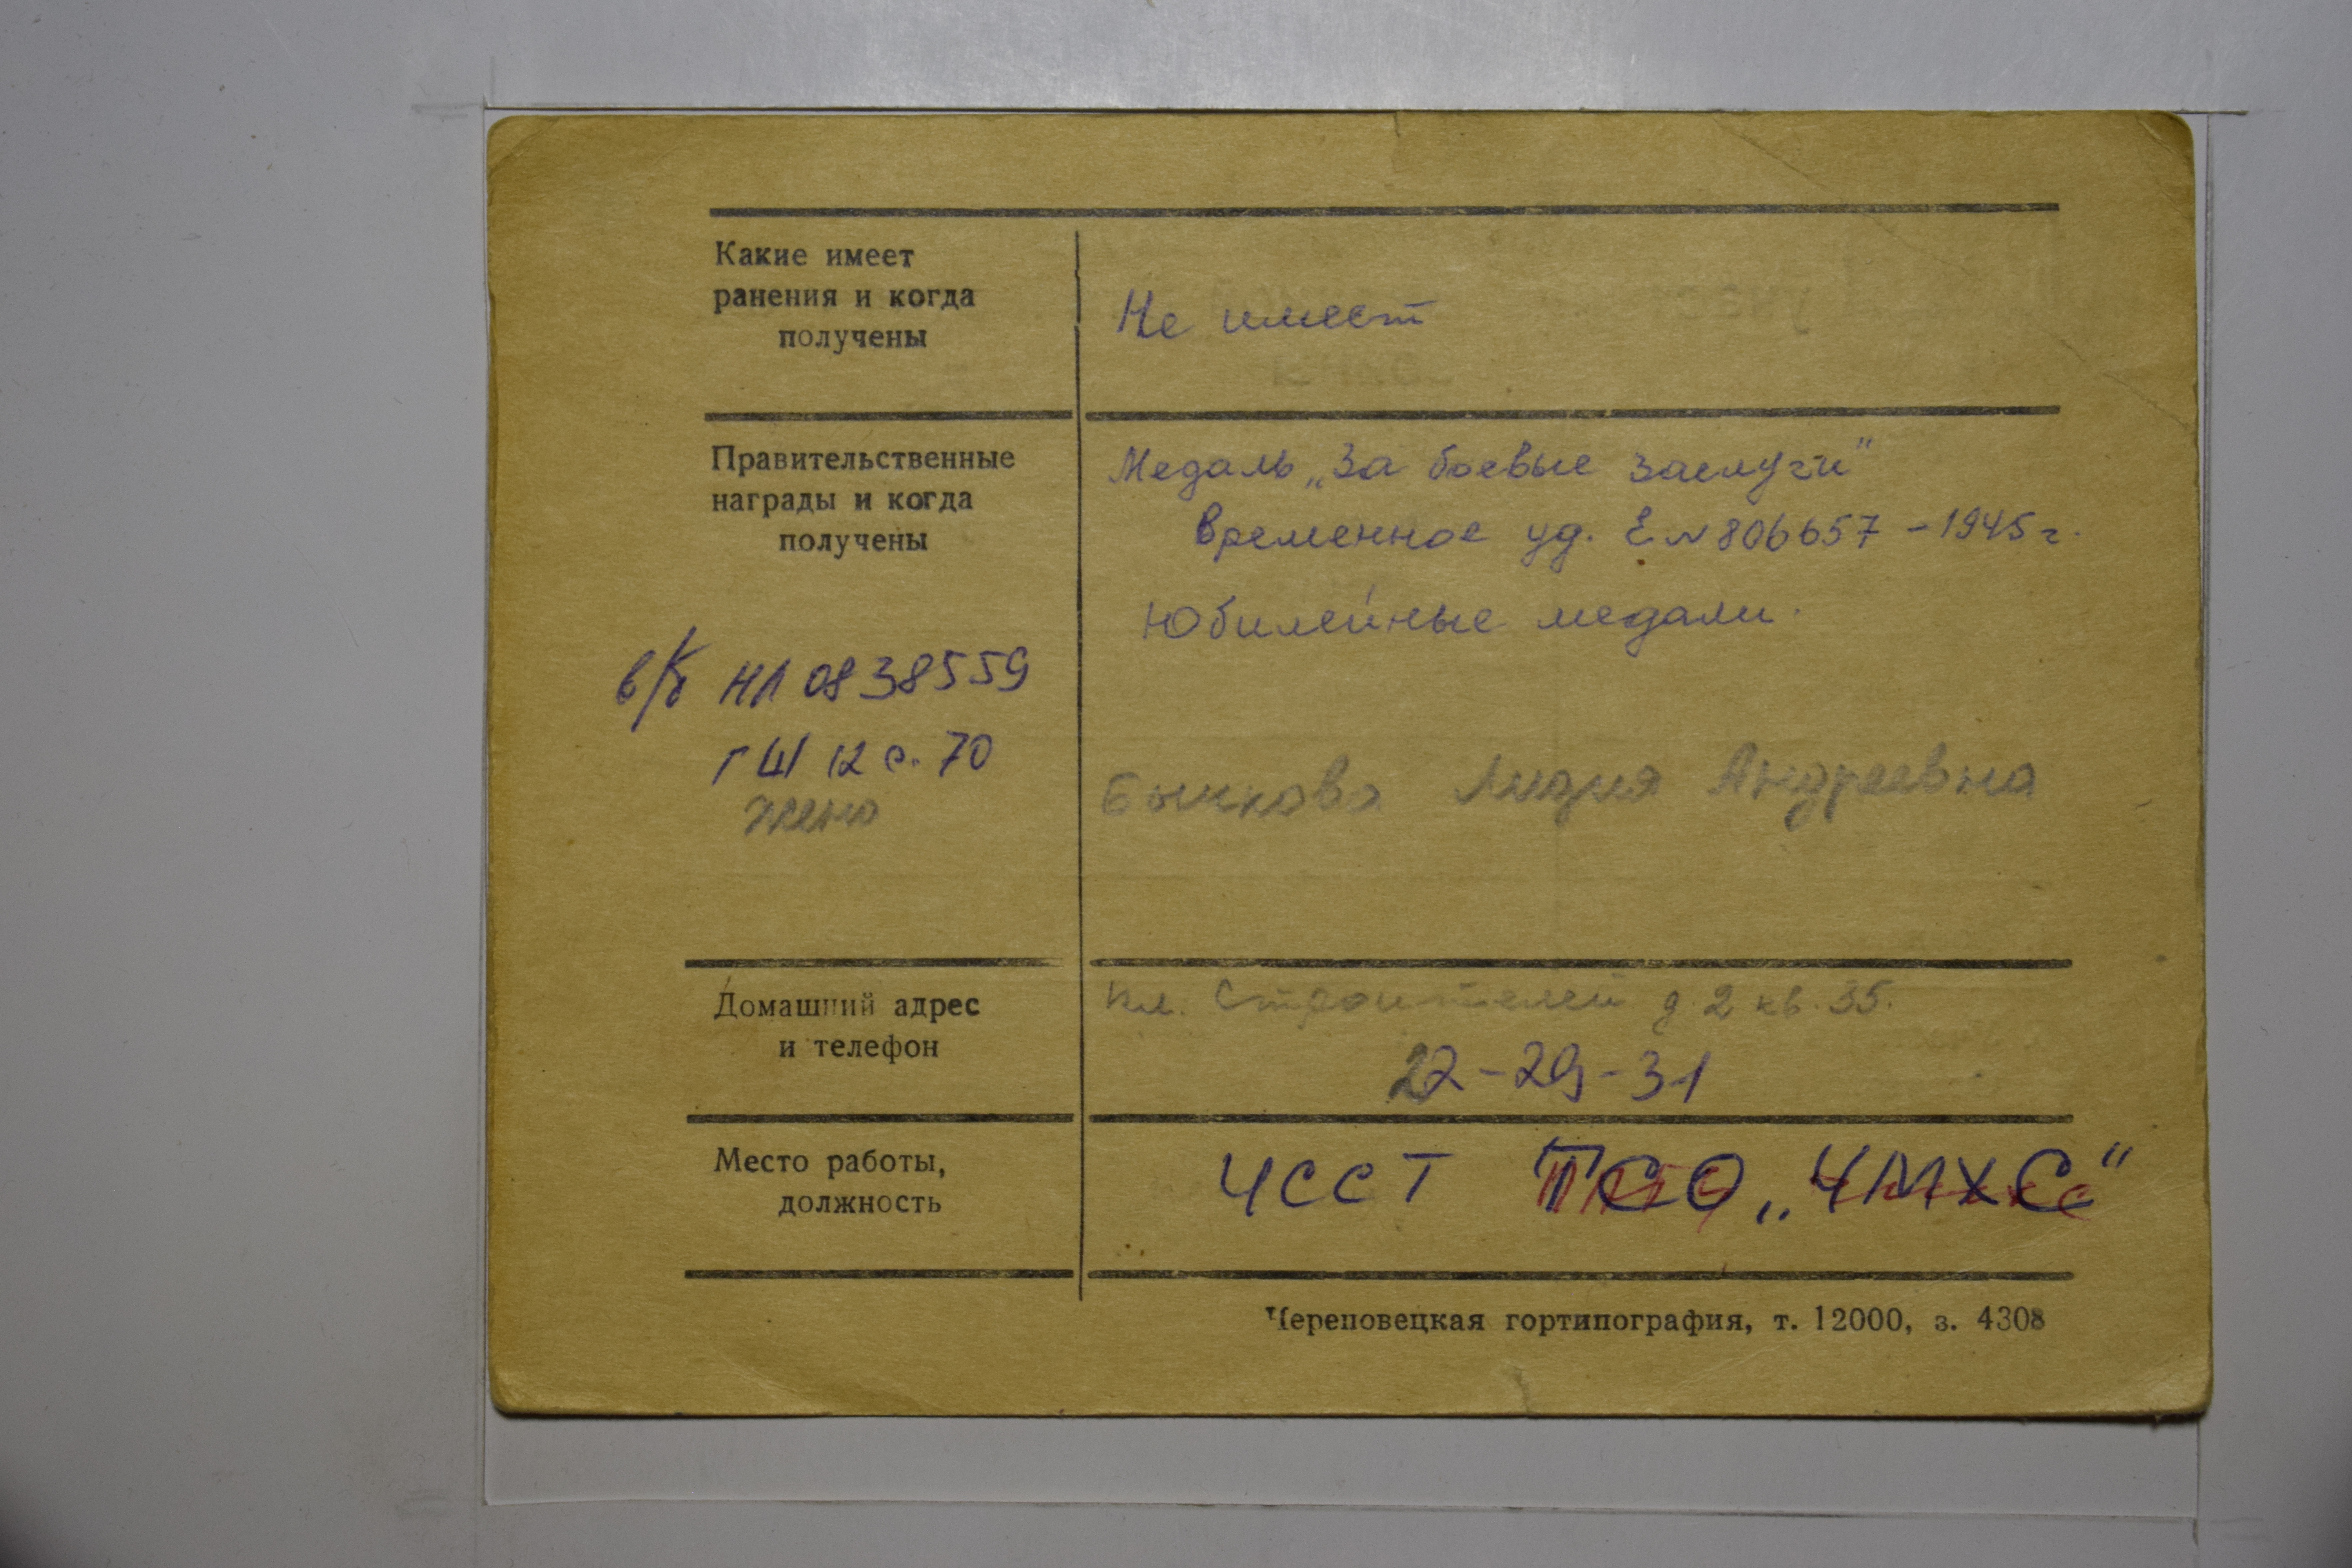 Какие имеет
ранения и когда
получены
Не имеет
Правительственные
награды и когда
получены
Медаль „За боевые заслуги"
Временное уд. Е № 806657 - 1945 г.
Юбилейные медали.
в/б НЛ 0838559
ГШ 12 с. 70
жена
Бычкова Лидия Андреевна
Домашний адрес
и телефон
пл. Строителей д. 2 кв. 35.
22-29-31
Место работы,
должность
ЧССТ ПСО „ЧМХС"
Череповецкая гортипография, т. 12000, з. 4308